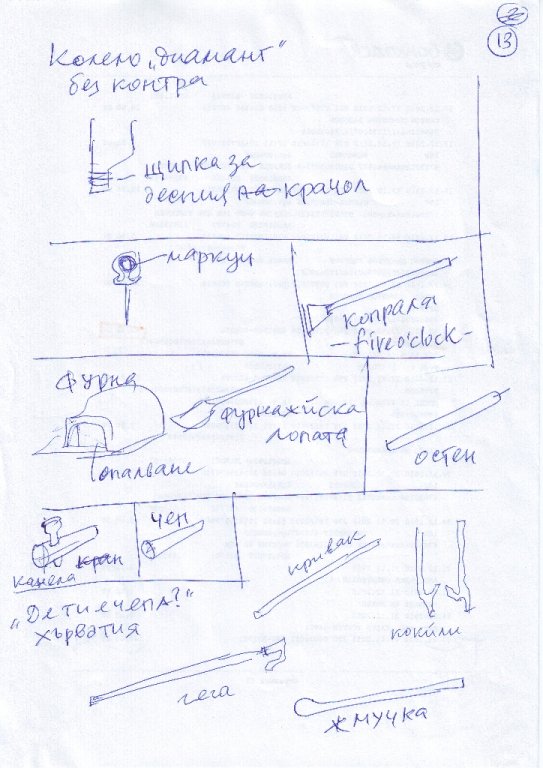 13
Колело „диамант“
без контра
щипка за
десния крачол
маркуч
копраля
- five o'clock -
фурна
фурнаджийска
лопата
опалване
остен
чеп
кран
канела
„Де ти е чепа?“
хърватия
кривак
кокили
гега
жмучка